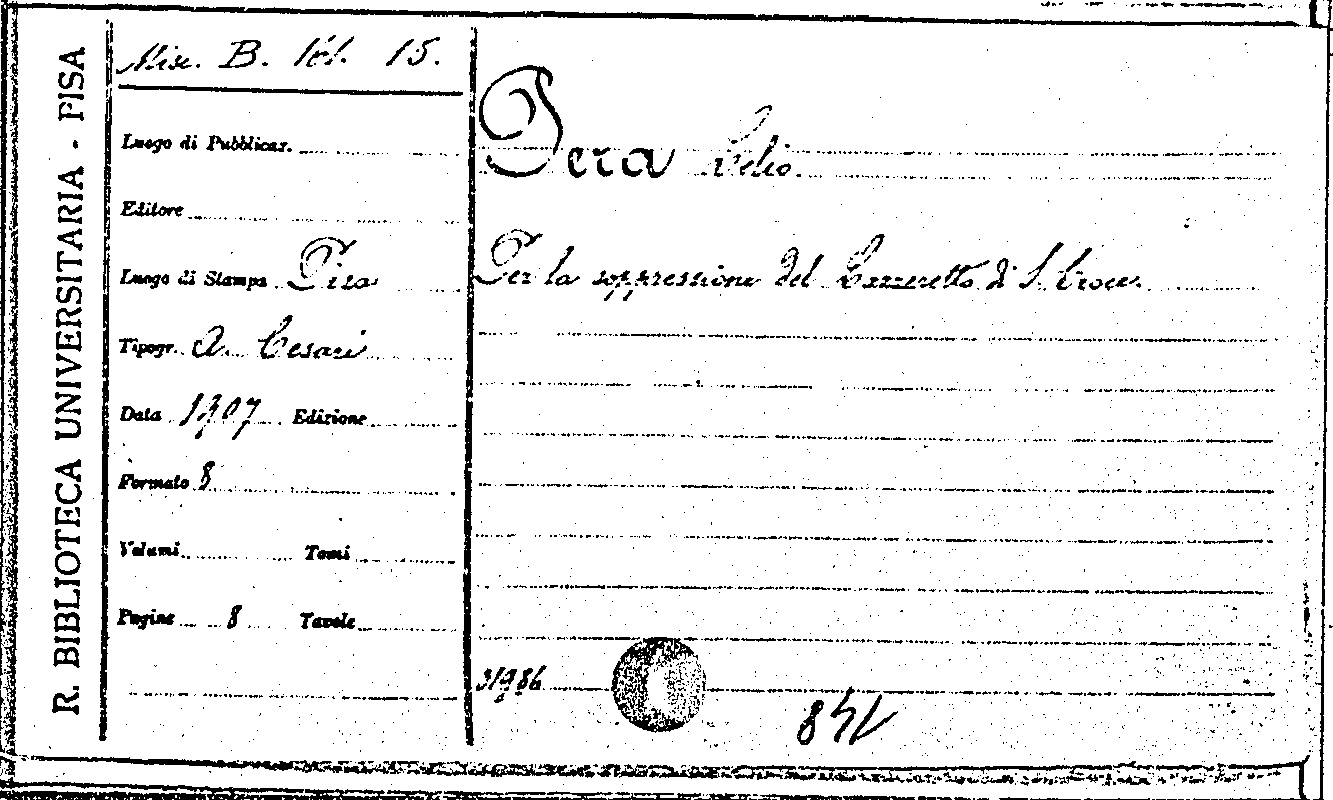 R. BIBLIOTECA UNIVERSITARIA - PISA
Misc. B. 101. 15.
Luogo di Pubblicaz.
Editore
Luogo di Stampa Pisa
Tipogr. A. Cesari
Data 1907 Edizione
Formato 8
Volumi Tomi
Pagine 8 Tavole
Pera Celio
Per la soppressione del Lazzeretto di S. Croce.
31986